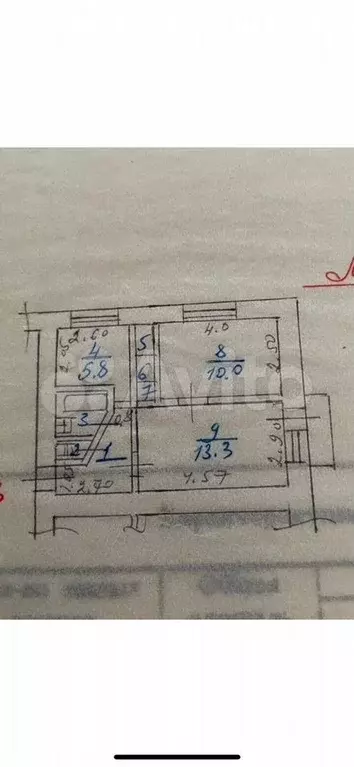 2.60
4.0
4
5.8
5
8
10.0
2.50
6
7
3
0,8
9
13.3
2.90
2
1
2.70
4.57
Avito